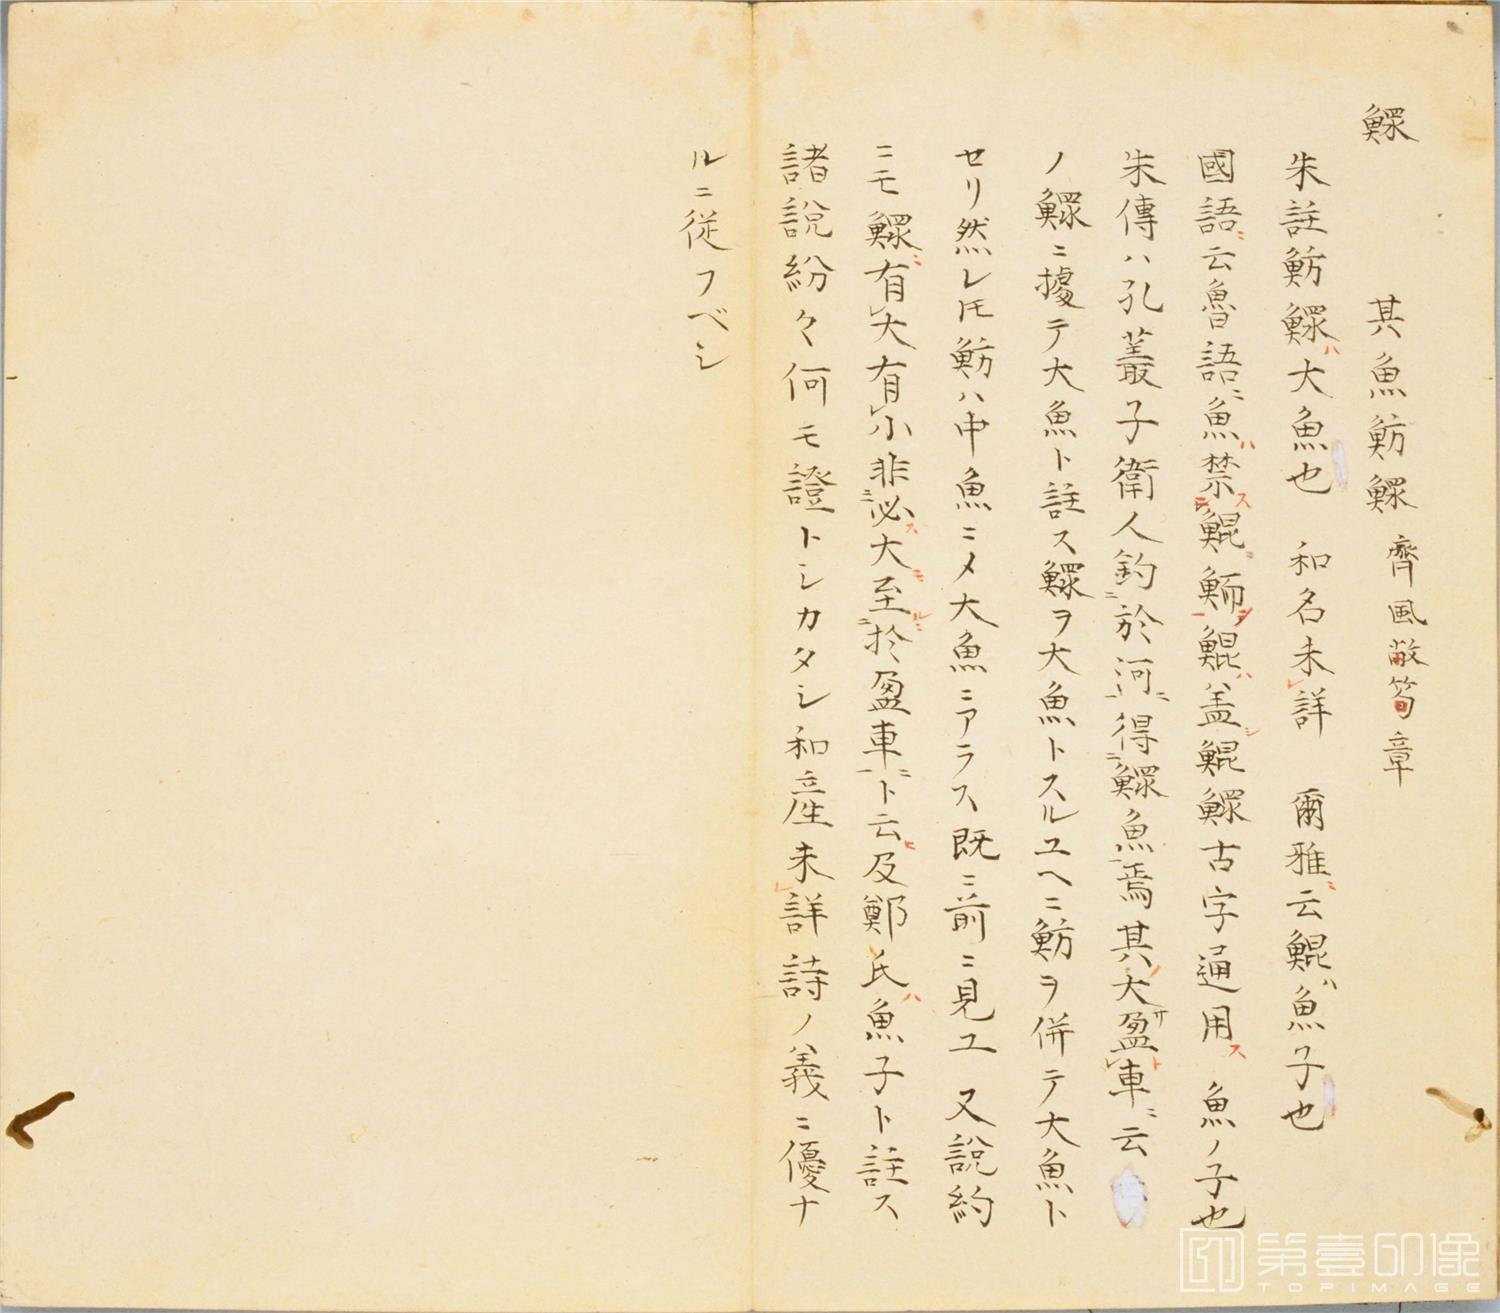 鰥
其魚魴鰥 齊風敝笱章
朱註魴鰥ハ大魚也 和名未レ詳 爾雅ニ云鯤ハ魚子也
國語ニ云魯語ニ魚ハ禁ス鯤鮞鯤ハ盖シ鯤鰥古字通用ス 魚ノ子也
朱傳ハ孔叢子衛人釣於河得鰥魚焉其大盈車ニ云
ノ鰥ニ據テ大魚ト註ス鰥ヲ大魚トスルユヘニ魴ヲ併テ大魚ト
セリ然レ𪜈魴ハ中魚ニメ大魚ニアラス既ニ前ニ見ユ 又說約
ニモ鰥ニ有レ大有レ小非必大至於盈車ト云及鄭氏ハ魚子ト註ス
諸說紛々何モ證トシカタシ和産未レ詳詩ノ義ニ優ナ
ルニ従フベシ
第壹印像
TOPIMAGE